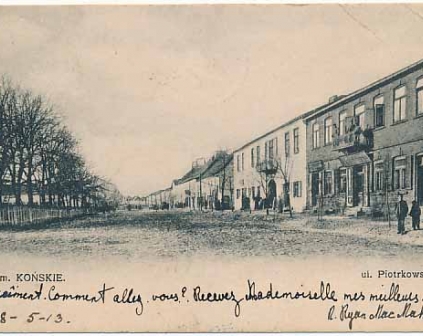 m. KOŃSKIE. ul. Piotrkows
Comment allez, vous? Recevez Mademoiselle mes meilleurs
8-5-13. R. Ryan Mac Ma